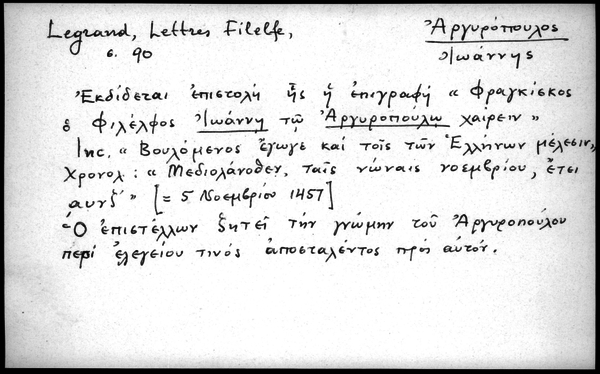 Legrand, Lettres Filelfe,
σ. 90
Ἀργυρόπουλος
Ἰωάννης
Ἐκδίδεται ἐπιστολή ἧς ἡ ἐπιγραφή « Φραγκίσκος
ὁ Φιλέλφος Ἰωάννῃ τῷ Ἀργυροπούλῳ χαίρειν »
Inc. « Βουλόμενος ἔγωγε καί τοῖς τῶν Ἑλλήνων μέλεσιν»
Χρονολ: « Μεδιολάνοθεν, ταῖς νώναις νοεμβρίου, ἔτει
αυνζ΄ » [= 5 Νοεμβρίου 1457]
Ὁ ἐπιστέλλων ζητεῖ τήν γνώμην τοῦ Ἀργυροπούλου
περί ἐλεγείου τινός ἀποσταλέντος πρός αὐτόν.